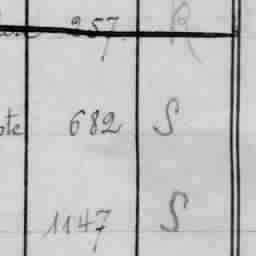 257 R
682 S
1147 S